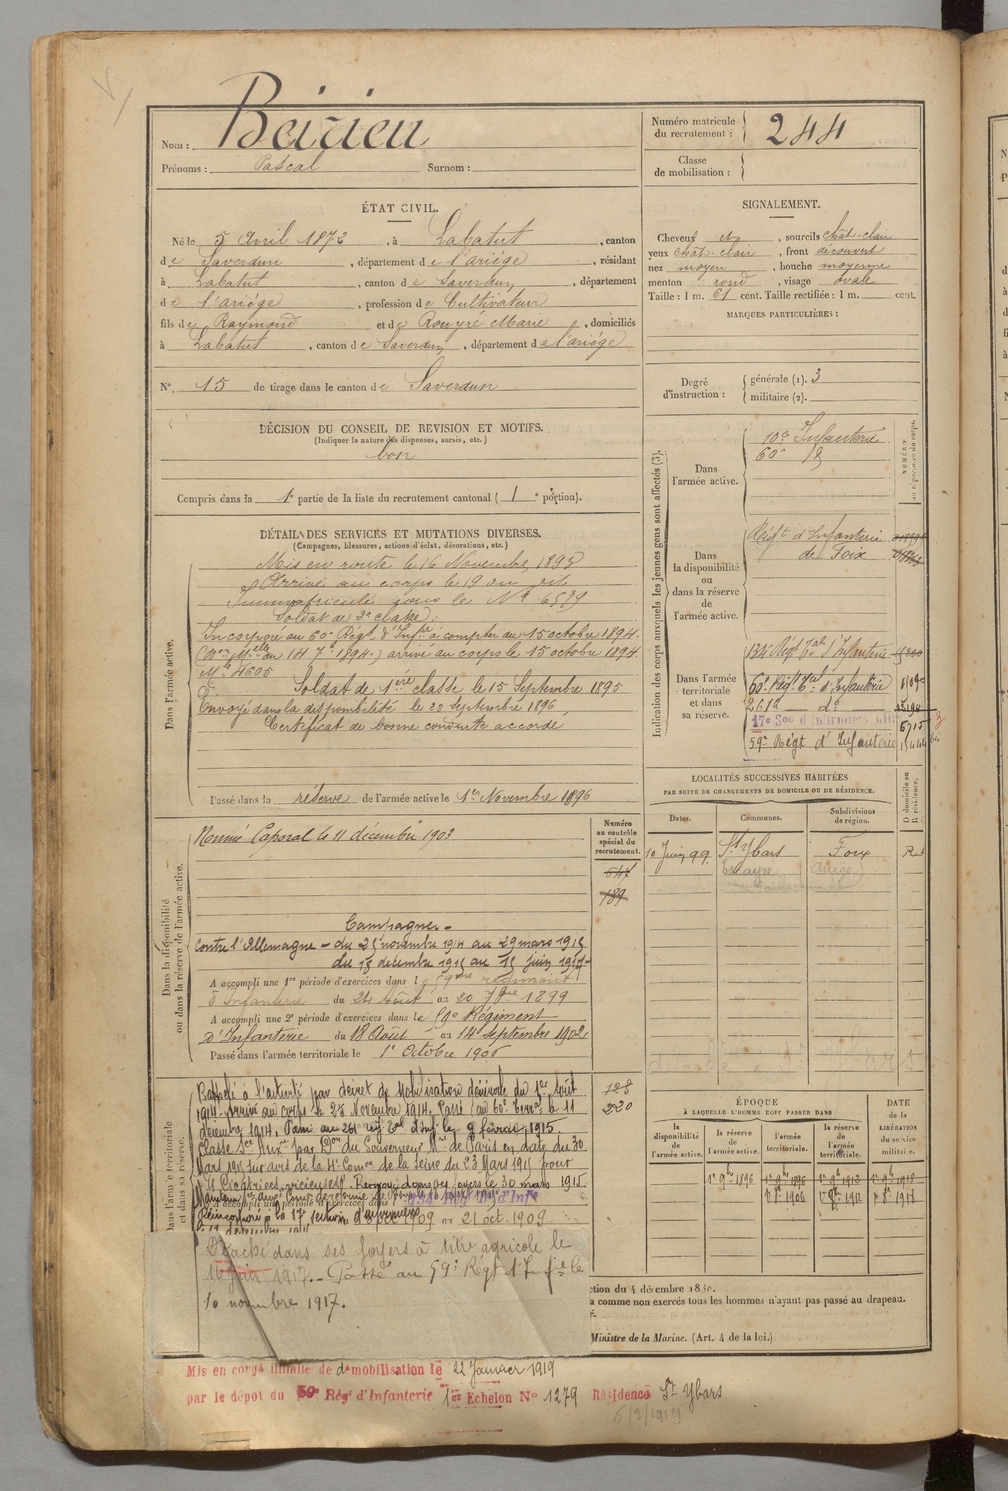 Nom : Beirien
Prénoms : Pascal Surnom :
Numéro matricule du recrutement : 244
Classe de mobilisation :
ÉTAT CIVIL.
Né le 5 Avril 1873, à Labatut, canton
de Saverdun, département de l'ariége, résidant
à Labatut, canton de Saverdun, département
de l'ariége, profession de Cultivateur
fils de Raymond et de Rouyré Marie, domiciliés
à Labatut, canton de Saverdun, département de l'ariége
N°. 15 de tirage dans le canton de Saverdun
SIGNALEMENT.
Cheveux et, sourcils chât-clair
yeux chât-clair, front découvert
nez moyen, bouche moyenne
menton rond, visage ovale
Taille : 1 m. 61 cent. Taille rectifiée : 1 m. cent.
MARQUES PARTICULIÈRES :
Degré d'instruction : générale (1). 3
militaire (2).
DÉCISION DU CONSEIL DE REVISION ET MOTIFS.
(Indiquer la nature des dispenses, sursis, etc.)
bon
Compris dans la 1e partie de la liste du recrutement cantonal (1e portion).
DÉTAIL DES SERVICES ET MUTATIONS DIVERSES.
(Campagnes, blessures, actions d'éclat, décorations, etc.)
Dans l'armée active.
Mis en route le 16 Novembre 1893
Arrivé au corps le 19 du dit
Immatriculé sous le N° 6579
Soldat de 2e classe.
Incorporé au 60e Régt d'Infie à compter du 15 octobre 1894.
(Don Mielle du 14 7bre 1894) arrivé au corps le 15 octobre 1894
Mle 4605
Soldat de 1ère classe le 15 Septembre 1895
Envoyé dans la disponibilité le 22 septembre 1896
Certificat de bonne conduite accordé
Passé dans la réserve de l'armée active le 1er Novembre 1896
Indication des corps auxquels les jeunes gens sont affectés (3).
Dans l'armée active.
10e Infanterie
60e d°
Dans la disponibilité ou dans la réserve de l'armée active.
Régt d'Infanterie
de Foix
Dans l'armée territoriale et dans sa réserve.
134 Régt Tal d'Infanterie
60e Régt Tal d'Infanterie
261e d°
17e Son d'Infirmiers Mil
59e Régt d'Infanterie
LOCALITÉS SUCCESSIVES HABITÉES
PAR SUITE DE CHANGEMENTS DE DOMICILE OU DE RÉSIDENCE.
Dates. Communes. Subdivisions de région. D domicile ou R résidence.
10 Juin 99 St Ybars Foix R
Dans la disponibilité ou dans la réserve de l'armée active.
Numéro au contrôle spécial du recrutement.
Nommé Caporal le 11 décembre 1903
647
189
Campagnes
contre l'Allemagne – du 25 novembre 1914 au 29 mars 1915
du 13 decembre 1915 au 15 juin 1917
A accompli une 1re période d'exercices dans le 59me régiment
d'Infanterie du 24 Août au 20 7bre 1899
A accompli une 2e période d'exercices dans le 59e Régiment
d'Infanterie du 18 Août au 14 septembre 1902
Passé dans l'armée territoriale le 1er Octobre 1906
Dans l'armée territoriale et dans sa réserve.
128
220
Rappelé à l'activité par décret de Mobilisation Générale du 1er Août
1914 Arrivé au corps le 25 Novembre 1914. Passé au 60e Terral le 11
décembre 1914. Passé au 261 rég Tal d'Inf le 9 février 1915.
Classé Sce Auxre par Don du Gouverneur Mre de Paris en date du 30
Mars 1915 sur avis de la 4e Comon de la Seine du 23 Mars 1915 pour
Cicatrices vicieuses. Renvoyé dans ses foyers le 30 mars 1915
du 9 oct 1909 au 21 oct. 1909
Détaché dans ses foyers à titre agricole le
16 juin 1917. – Passé au 59e Régt d'Infie le
10 novembre 1917.
ÉPOQUE
À LAQUELLE L'HOMME DOIT PASSER DANS
la disponibilité de l'armée active. la réserve de l'armée active. l'armée territoriale. la réserve de l'armée territoriale.
DATE de la LIBÉRATION du service militaire.
1er 9bre 1896
1er 8bre 1906
ction du 4 décembre 1830.
a comme non exercés tous les hommes n'ayant pas passé au drapeau.
Ministre de la Marine. (Art. 4 de la loi.)
Mis en congé illimité de démobilisation le 22 Janvier 1919
par le dépôt du 59e Régt d'Infanterie 1er Echelon N° 1279 Résidence St Ybars
6/2/1919